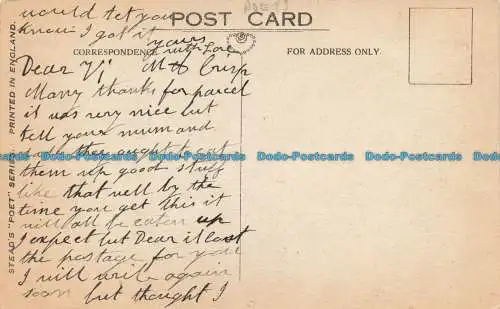 would let you
know I got it
yours
with Love
POST CARD
CORRESPONDENCE
FOR ADDRESS ONLY.
STEAD'S "POET" SERIES. PRINTED IN ENGLAND.
Dear V M Crisp
Many thanks for parcel
it was very nice but
tell your mum and
dad they ought to eat
them up good stuff
like that well by the
time you get this it
will all be eaten up
I expect but Dear it cost
the postage for you
I will write again
soon but thought I
Dodo-Postcards Dodo-Postcards Dodo-Postcards Dodo-Postcards